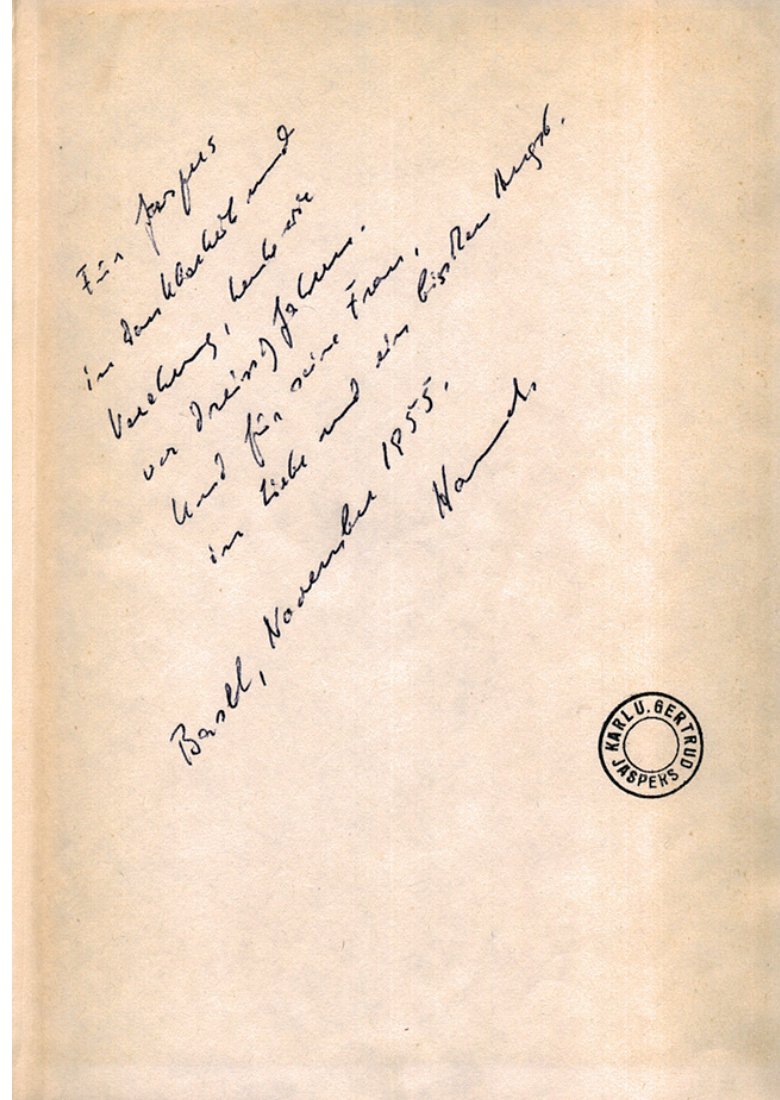 Für Jaspers
in Dankbarkeit und
Verehrung, heute wie
vor dreissig Jahren.
Und für seine Frau,
in Liebe und ein bisschen Angst.
Basel, November 1955.
Hannah
KARL U. GERTRUD
JASPERS